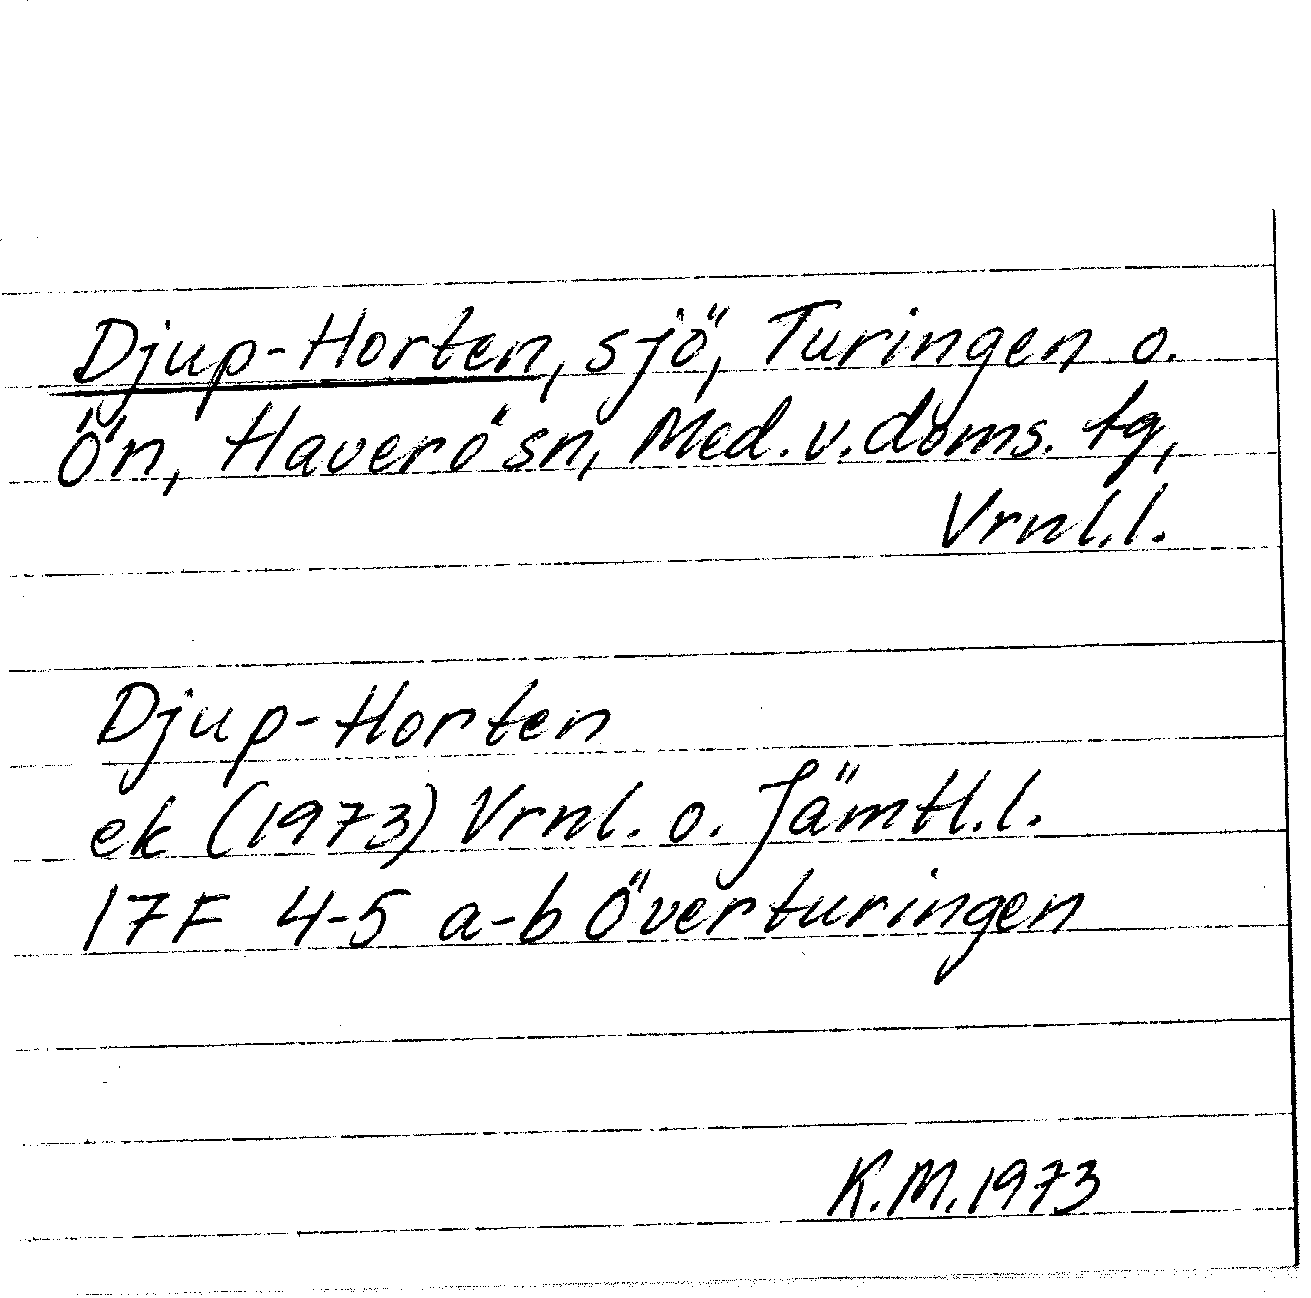 Djup-Horten, sjö, Turingen o.
Ön, Haverö sn, Med. v. doms. tg,
Vrnl.l.
Djup-Horten
ek (1973) Vrnl. o. Jämtl.l.
17F 4-5 a-b Överturingen
K.M. 1973